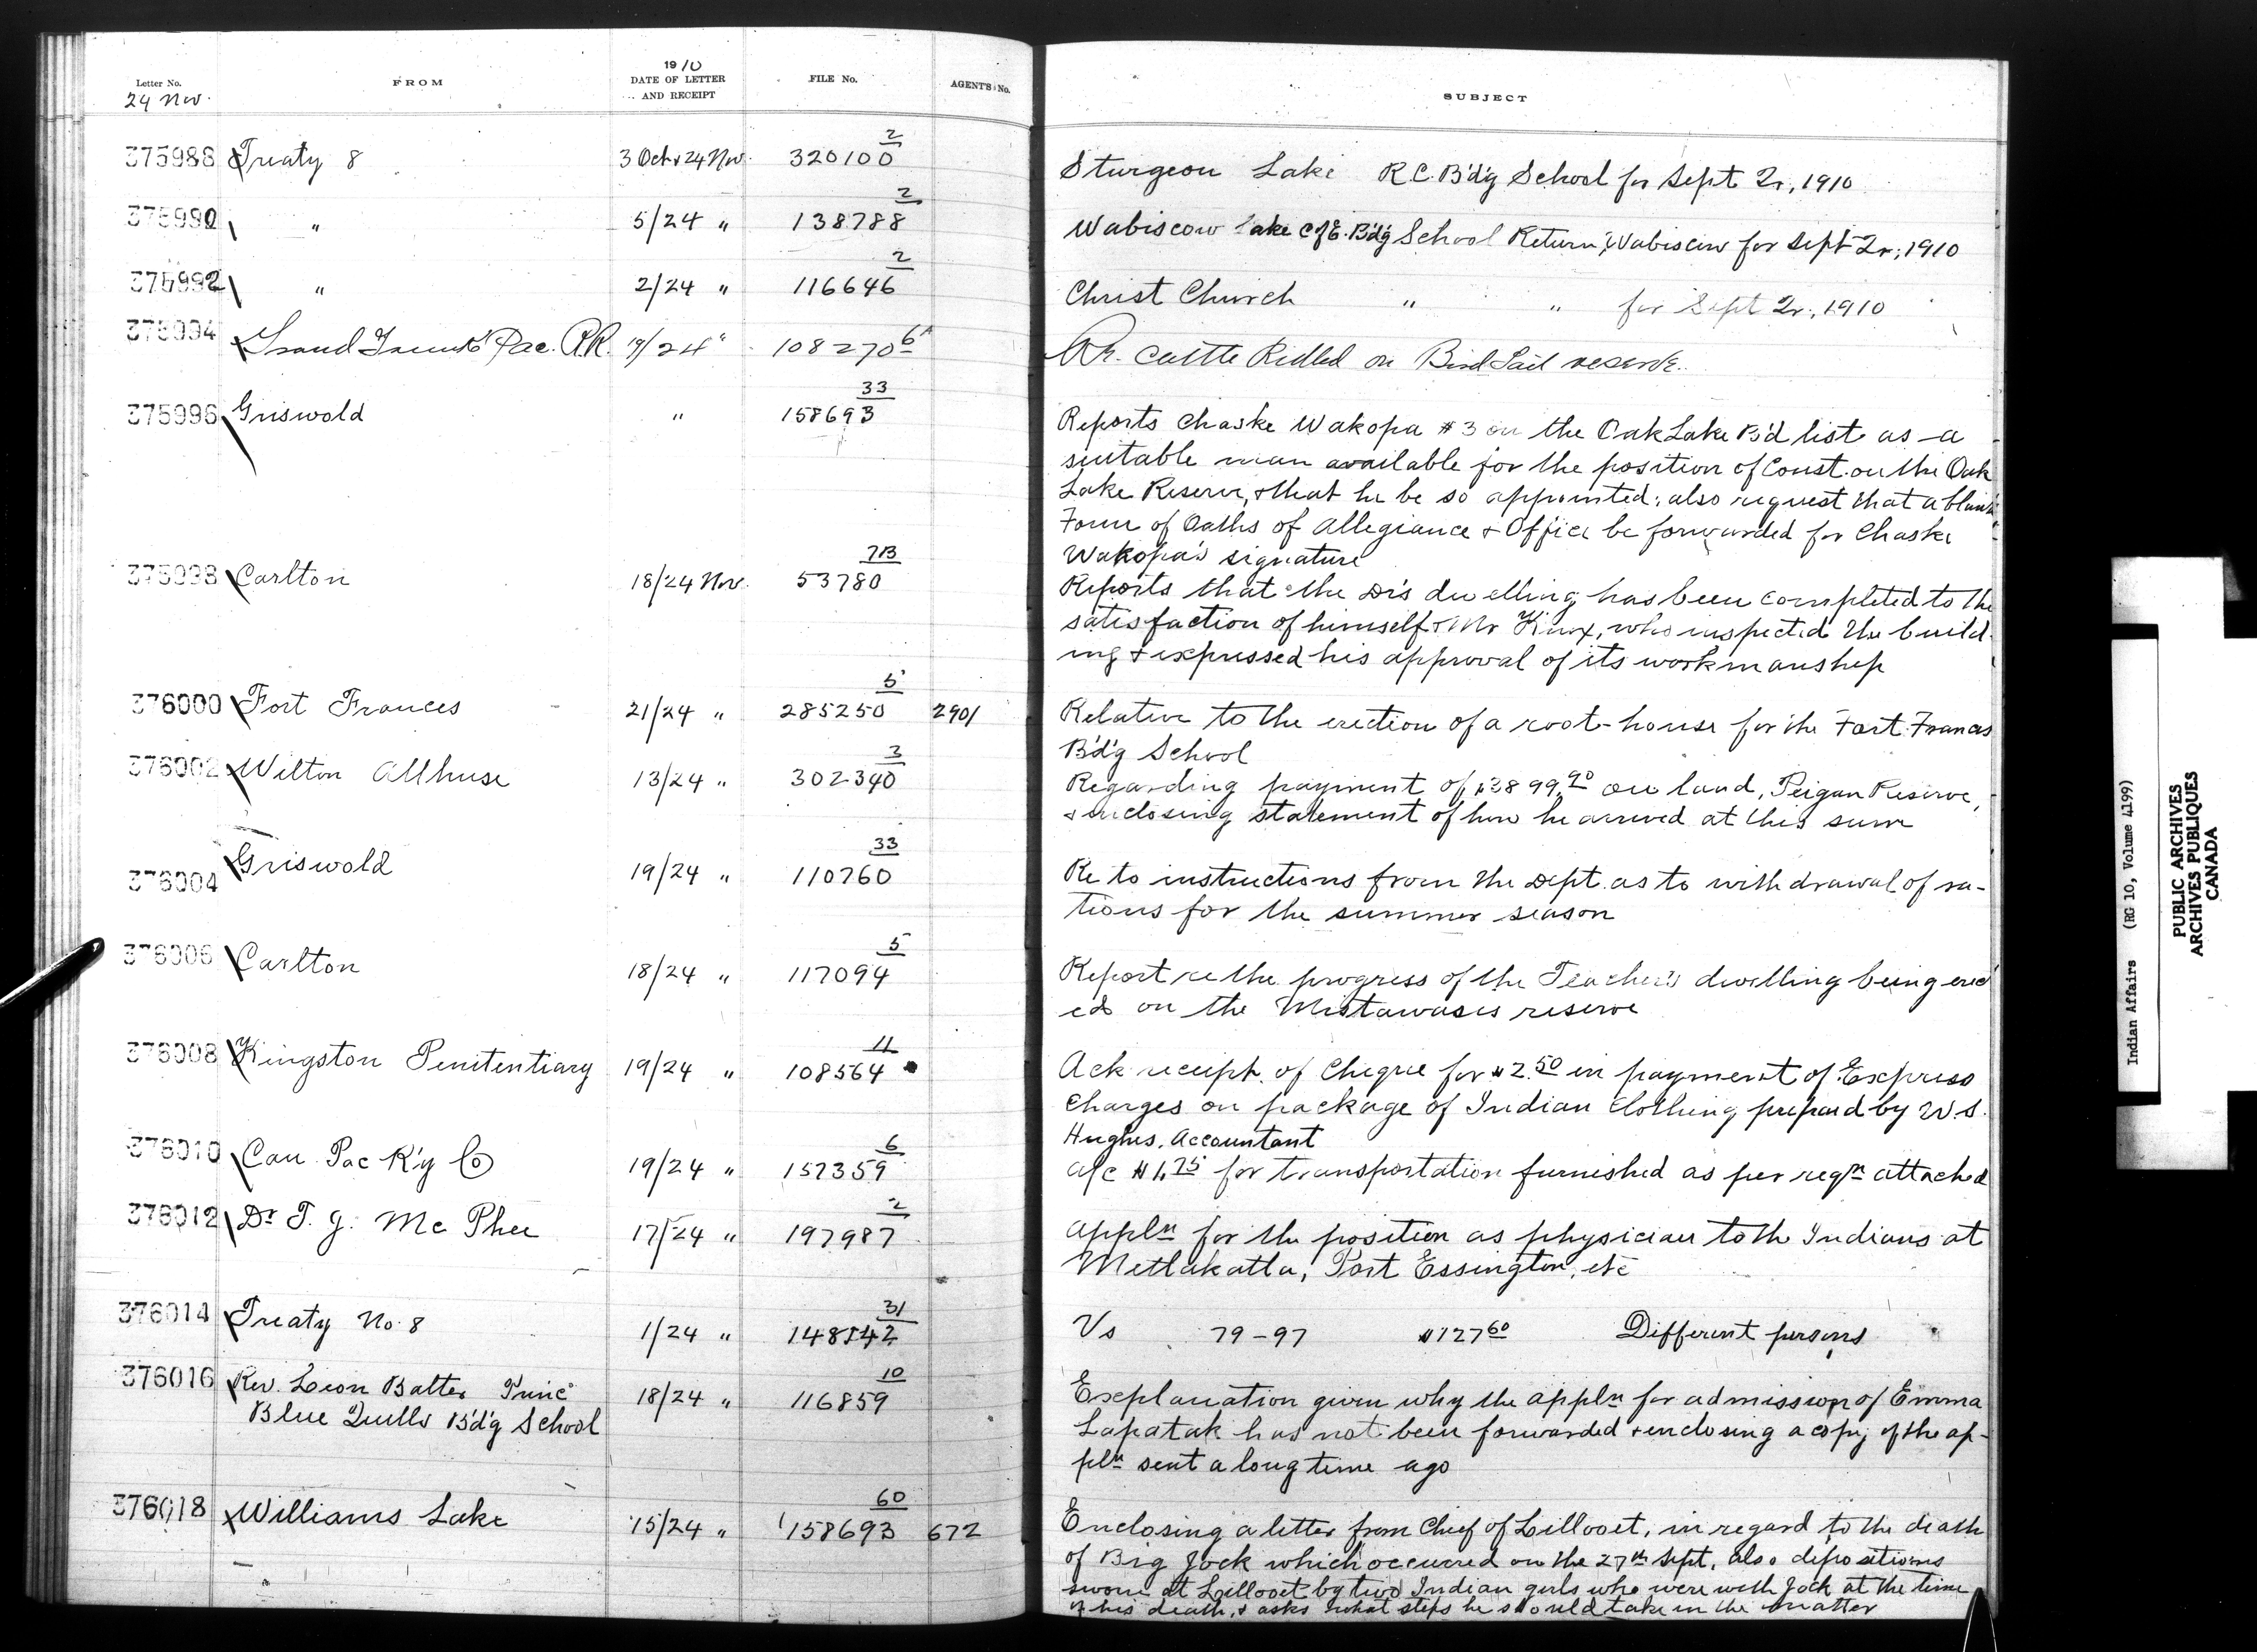 Letter No. FROM 1910 DATE OF LETTER AND RECEIPT FILE No. AGENT'S No. SUBJECT
24 Nov.
375988 Treaty 8 3 Oct & 24 Nov. 320100 2 Sturgeon Lake R.C. B'd'g School for Sept Qr, 1910
375990 " 5/24 " 138788 2 Wabiscow Lake C of E. B'd'g School Return, Wabiscow for Sept Qr, 1910
375992 " 2/24 " 116646 2 Christ Church " " for Sept Qr., 1910
375994 Grand Trunk Pac. R.R. 19/24 " 108270 6 Re. Cattle Killed on Bird Tail reserve.
375996 Griswold " 158693 33 Reports Chaske Wakopa #3 on the Oak Lake B'd list as a
suitable man available for the position of Const. on the Oak
Lake Reserve, & that he be so appointed; also request that a blank
Form of Oaths of Allegiance & Office be forwarded for Chaske
Wakopa's signature
375998 Carlton 18/24 Nov. 53780 7B Reports that the Dr's dwelling has been completed to the
satisfaction of himself & Mr Knox, who inspected the build-
ing & expressed his approval of its workmanship
376000 Fort Frances 21/24 " 285250 5 2901 Relative to the erection of a root-house for the Fort Frances
B'd'g School
376002 Wilton Allhuse 13/24 " 302340 3 Regarding payment of $3899.90 on land, Peigan Reserve,
& enclosing statement of how he arrived at this sum
376004 Griswold 19/24 " 110760 33 Re to instructions from the Dept. as to withdrawal of ra-
tions for the summer season
376006 Carlton 18/24 " 117094 5 Report re the progress of the Teacher's dwelling being erect
ed on the Mistawasis reserve
376008 Kingston Penitentiary 19/24 " 108564 11 Ack receipt of Cheque for $2.50 in payment of Express
Charges on package of Indian Clothing prepaid by W.S.
Hughes, Accountant
376010 Can Pac R'y Co 19/24 " 157359 6 a/c $1.75 for transportation furnished as per reqn attached
376012 Dr T. J. McPhee 17/24 " 197987 2 appln for the position as physician to the Indians at
Metlakatla, Port Essington, etc
376014 Treaty No. 8 1/24 " 148542 31 Vs 79-97 $127.60 Different persons
376016 Rev. Leon Balter Princ' 18/24 " 116859 10 Explanation given why the appln for admission of Emma
Blue Quills B'd'g School Lapatak has not been forwarded & enclosing a copy of the ap-
pln sent a long time ago
376018 Williams Lake 15/24 " 158693 60 672 Enclosing a letter from Chief of Lillooet, in regard to the death
of Big Jock which occurred on the 27th Sept, also depositions
sworn at Lillooet by two Indian girls who were with Jock at the time
of his death, & asks what steps he should take in the matter
Indian Affairs (RG 10, Volume 4199)
PUBLIC ARCHIVES
ARCHIVES PUBLIQUES
CANADA